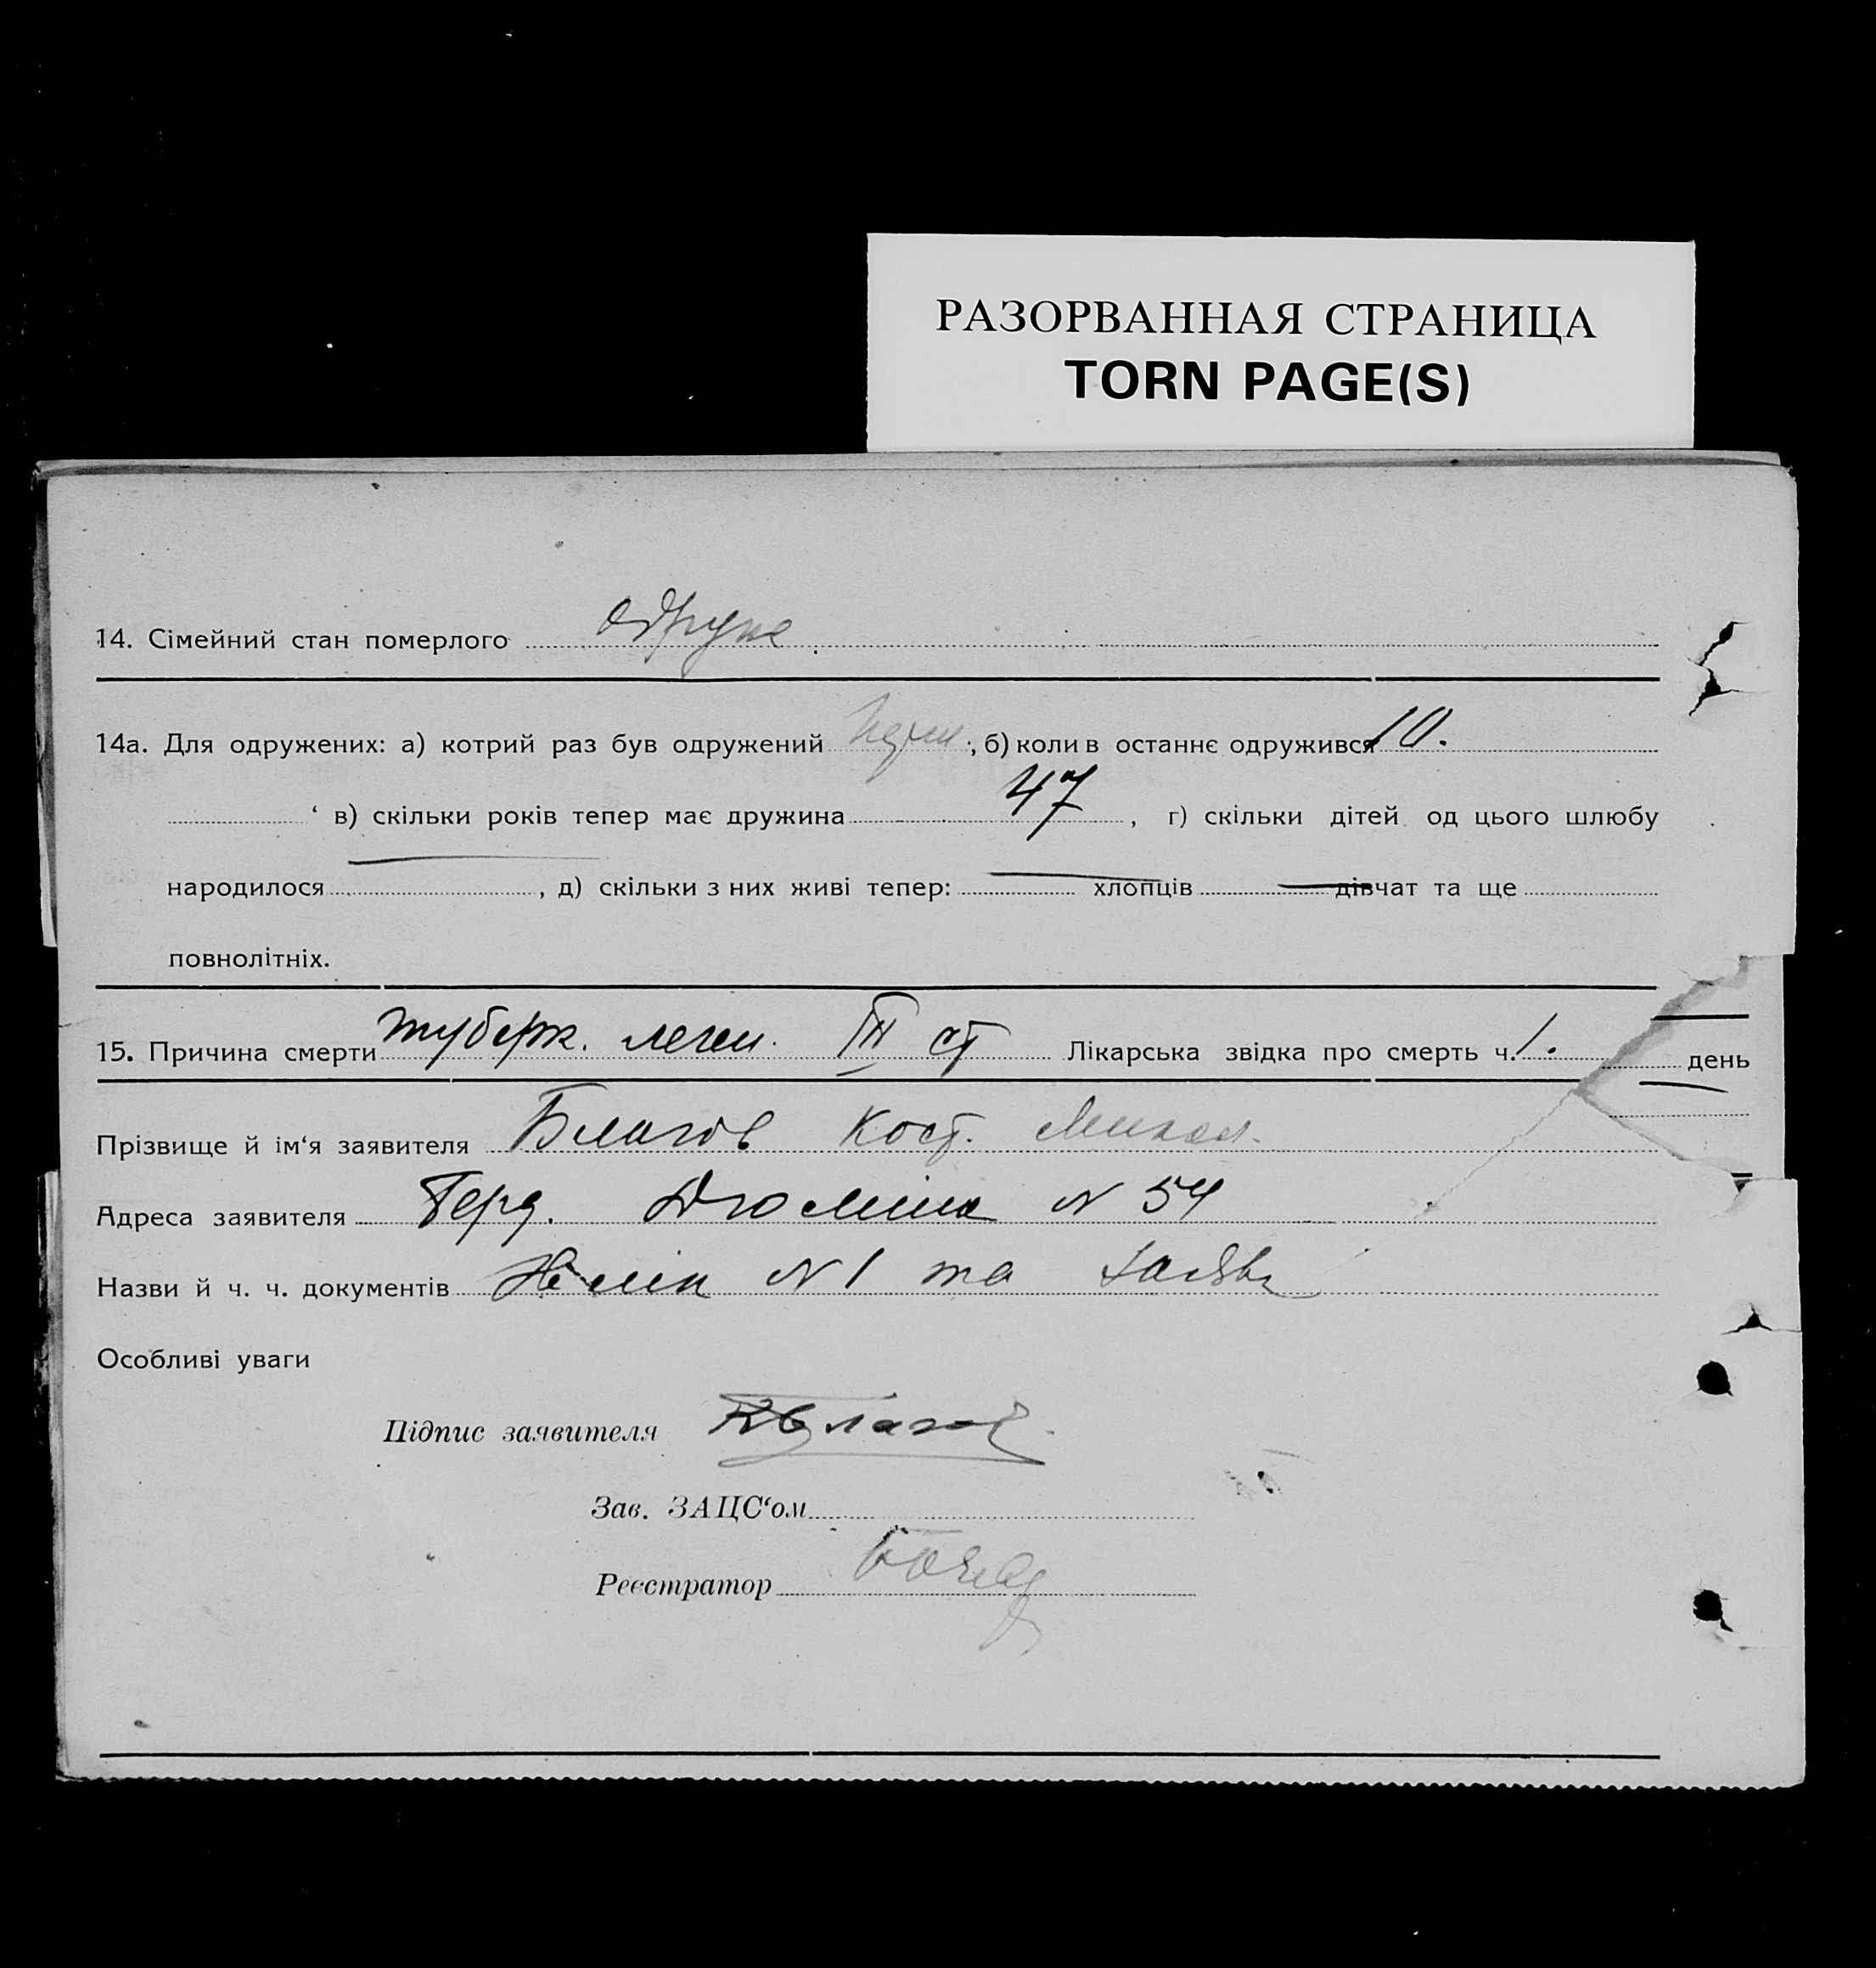 РАЗОРВАННАЯ СТРАНИЦА
TORN PAGE(S)
14. Сімейний стан померлого одруже
14а. Для одружених: а) котрий раз був одружений , б) коли в останнє одружився 10.
в) скільки років тепер має дружина 47, г) скільки дітей од цього шлюбу
народилося , д) скільки з них живі тепер: хлопців дівчат та ще
повнолітніх.
15. Причина смерти туберк. леген. III ст Лікарська звідка про смерть ч. 1. день
Прізвище й ім‘я заявителя Благов Кост. Микол.
Адреса заявителя Берд. Дюміна N 54
Назви й ч. ч. документів N 1 та заява
Особливі уваги
Підпис заявителя КБлагов
Зав. ЗАЦС‘ом
Реєстратор